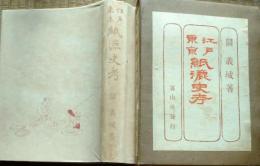 江戸
東京
紙漉史考
關義城
關義城著
江戸
東京
紙漉史考
冨山房發行